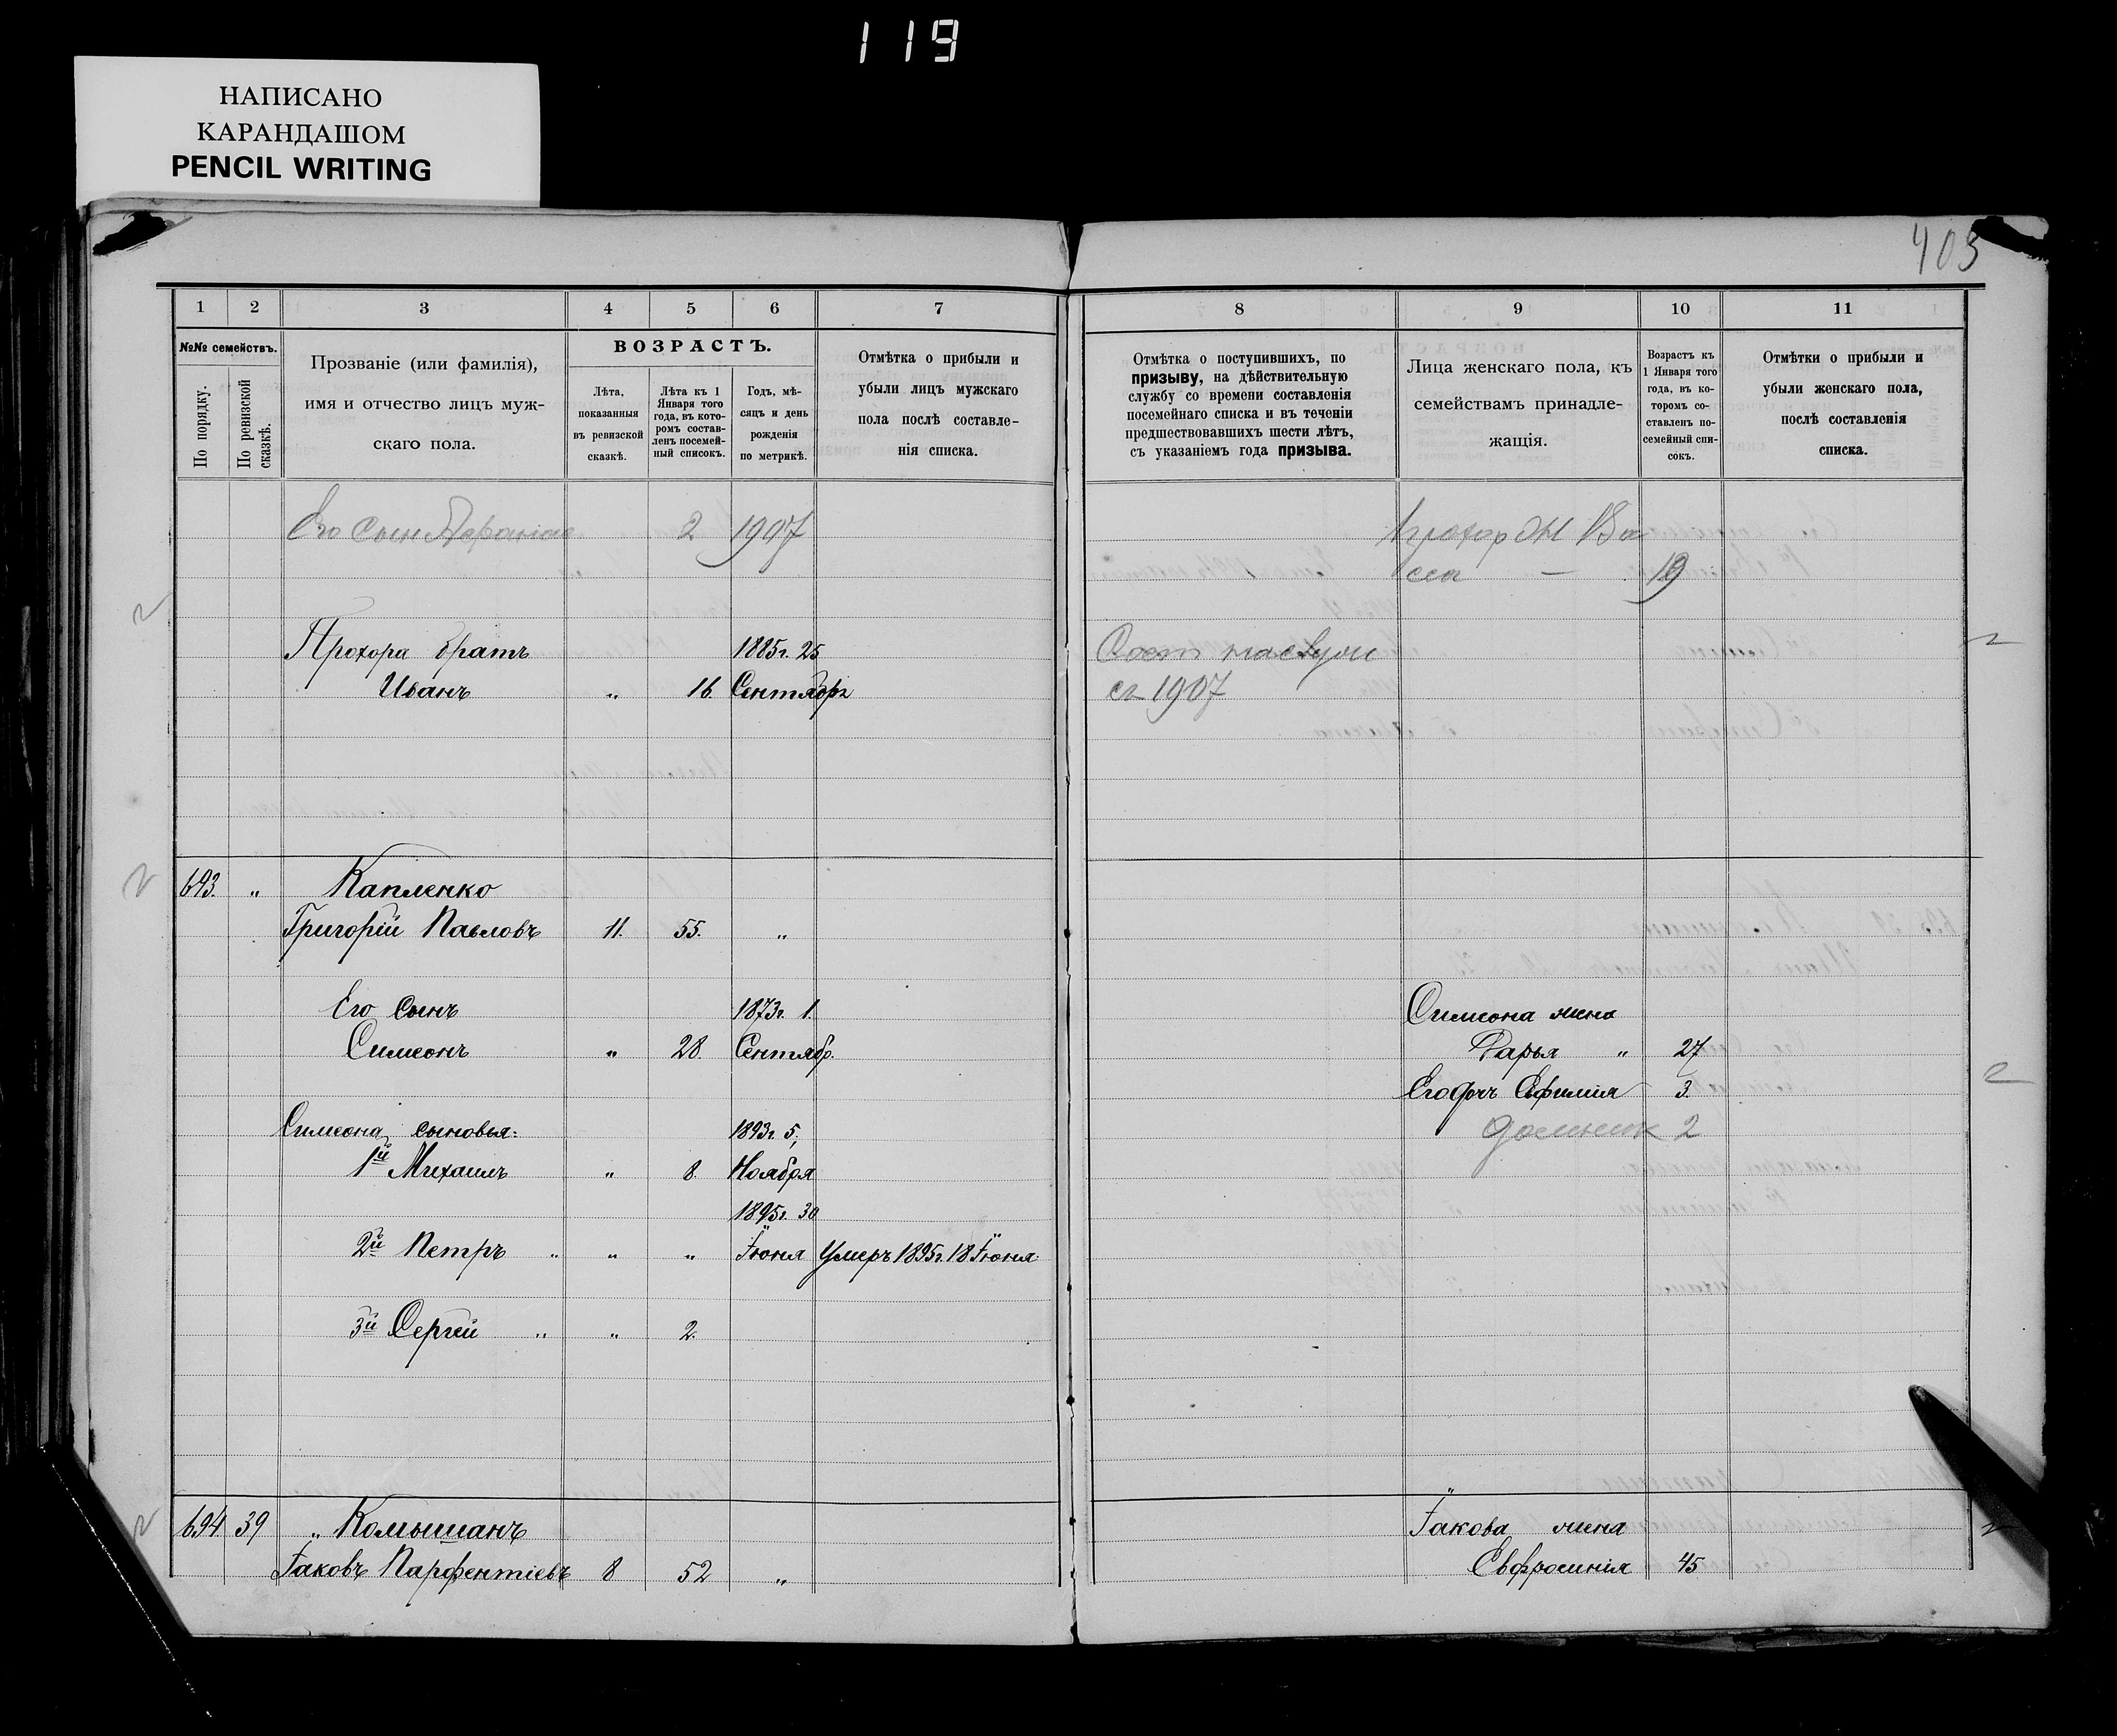 119
НАПИСАНО
КАРАНДАШОМ
PENCIL WRITING
403
1 2 3 4 5 6 7 8 9 10 11
№№ семействъ.
По порядку.
По ревизской сказкѣ.
Прозваніе (или фамилія),
имя и отчество лицъ муж-
скаго пола.
ВОЗРАСТЪ.
Лѣта,
показанныя
въ ревизской
сказкѣ.
Лѣта къ 1
Января того
года, въ кото-
ромъ состав-
ленъ посемей-
ный списокъ.
Годъ, мѣ-
сяцъ и день
рожденія
по метрикѣ.
Отмѣтка о прибыли и
убыли лицъ мужскаго
пола послѣ составле-
нія списка.
Отмѣтка о поступившихъ, по
призыву, на дѣйствительную
службу со времени составленія
посемейнаго списка и въ теченіи
предшествовавшихъ шести лѣтъ,
съ указаніемъ года призыва.
Лица женскаго пола, къ
семействамъ принадле-
жащія.
Возрастъ къ
1 Января того
года, въ ко-
торомъ со-
ставленъ по-
семейный спи-
сокъ.
Отмѣтки о прибыли и
убыли женскаго пола,
послѣ составленія
списка.
Его сын 2 1907 Прохор
19
Прохора братъ 1885г. 25
Иванъ „ 16 Сентября съ 1907
693. „ Капленко
Григорій Павловъ 11. 55. „
Его сынъ 1873г. 1 Симеона жена
Симеонъ „ 28. Сентябр. Дарья „ 27
Его дочь Ефимія 3.
Симеона сыновья: 1893г. 5, 2
1й Михаилъ „ 8. Ноября
1895г. 30
2й Петръ „ „ „ Іюня Умеръ 1895г. 18 Іюня
3й Сергей „ „ 2.
694 39 „ Комышанъ Іакова жена
Іаковъ Парфентіевъ 8 52 „ Евфросинія 45